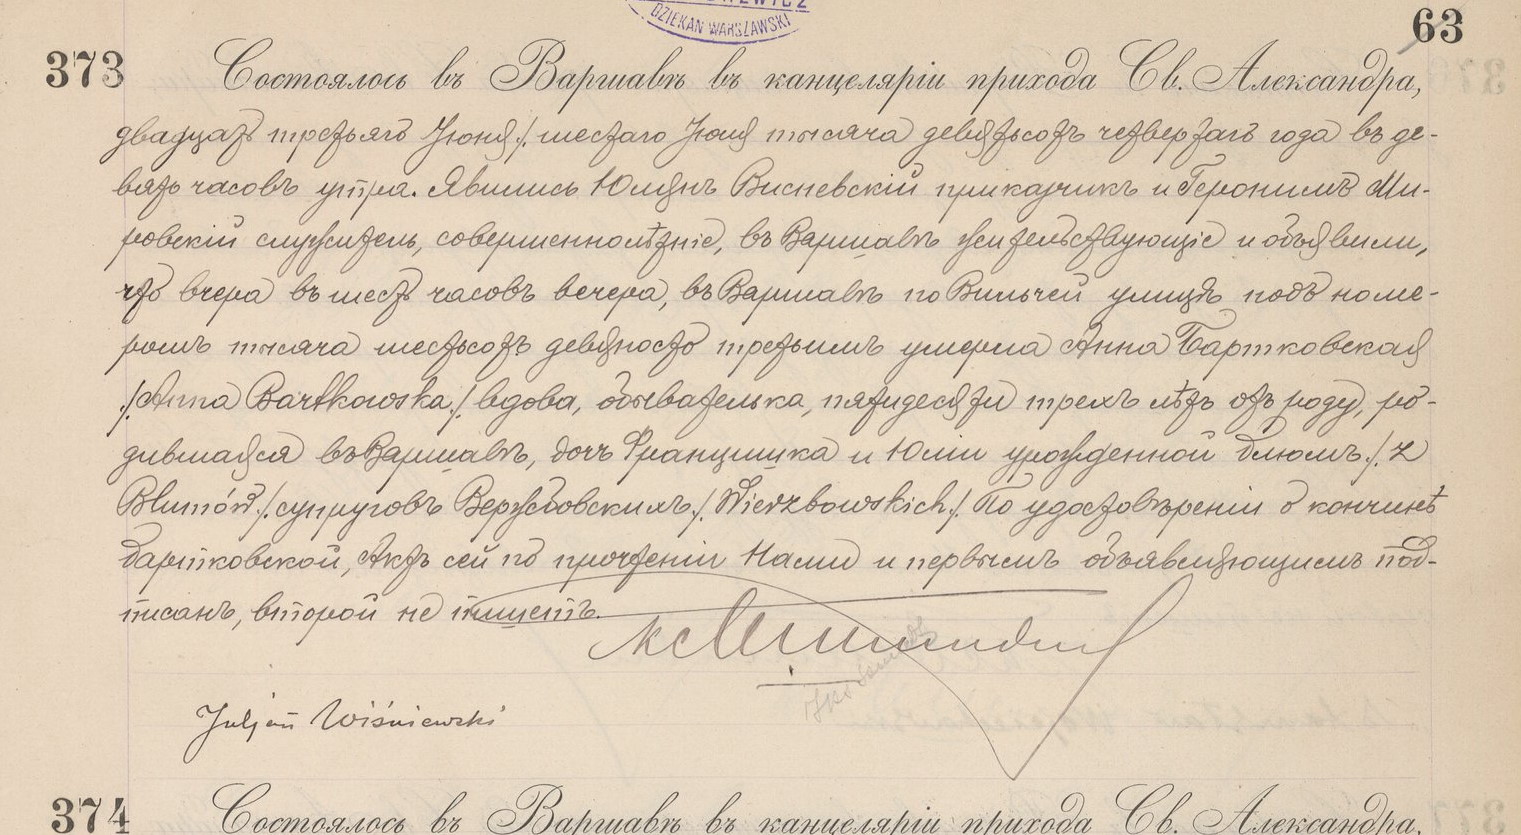 DZIEKAN WARSZAWSKI
63
373 Состоялось въ Варшавѣ въ канцеляріи прихода Св. Александра,
двадцать третьяго Іюня /. шестаго Іюля тысяча девятьсотъ четвертаго года въ де-
вять часовъ утра. Явились Юліянъ Висневскій приказчикъ и Геронимъ Ми-
ровскій служитель, совершеннолѣтніе, въ Варшавѣ жительствующіе и объявили,
что вчера въ шесть часовъ вечера, въ Варшавѣ по Вильчей улицѣ подъ номе-
ромъ тысяча шестьсотъ девяносто третьимъ умерла Анна Бартковская
/. Anna Bartkowska ./ вдова, обывателька, пятидесяти трехъ лѣтъ отъ роду, ро-
дившаяся въ Варшавѣ, дочь Францишка и Юліи урожденной Блюмъ ./. z
Blumów ./. супруговъ Вержбовскихъ ./. Wierzbowskich ./. По удостовѣреніи о кончинѣ
Бартковской, Актъ сей по прочтеніи Нами и первымъ объявляющимъ под-
писанъ, второй не пишетъ.
Juljan Wiśniewski
374 Состоялось въ Варшавѣ въ канцеляріи прихода Св. Александра,